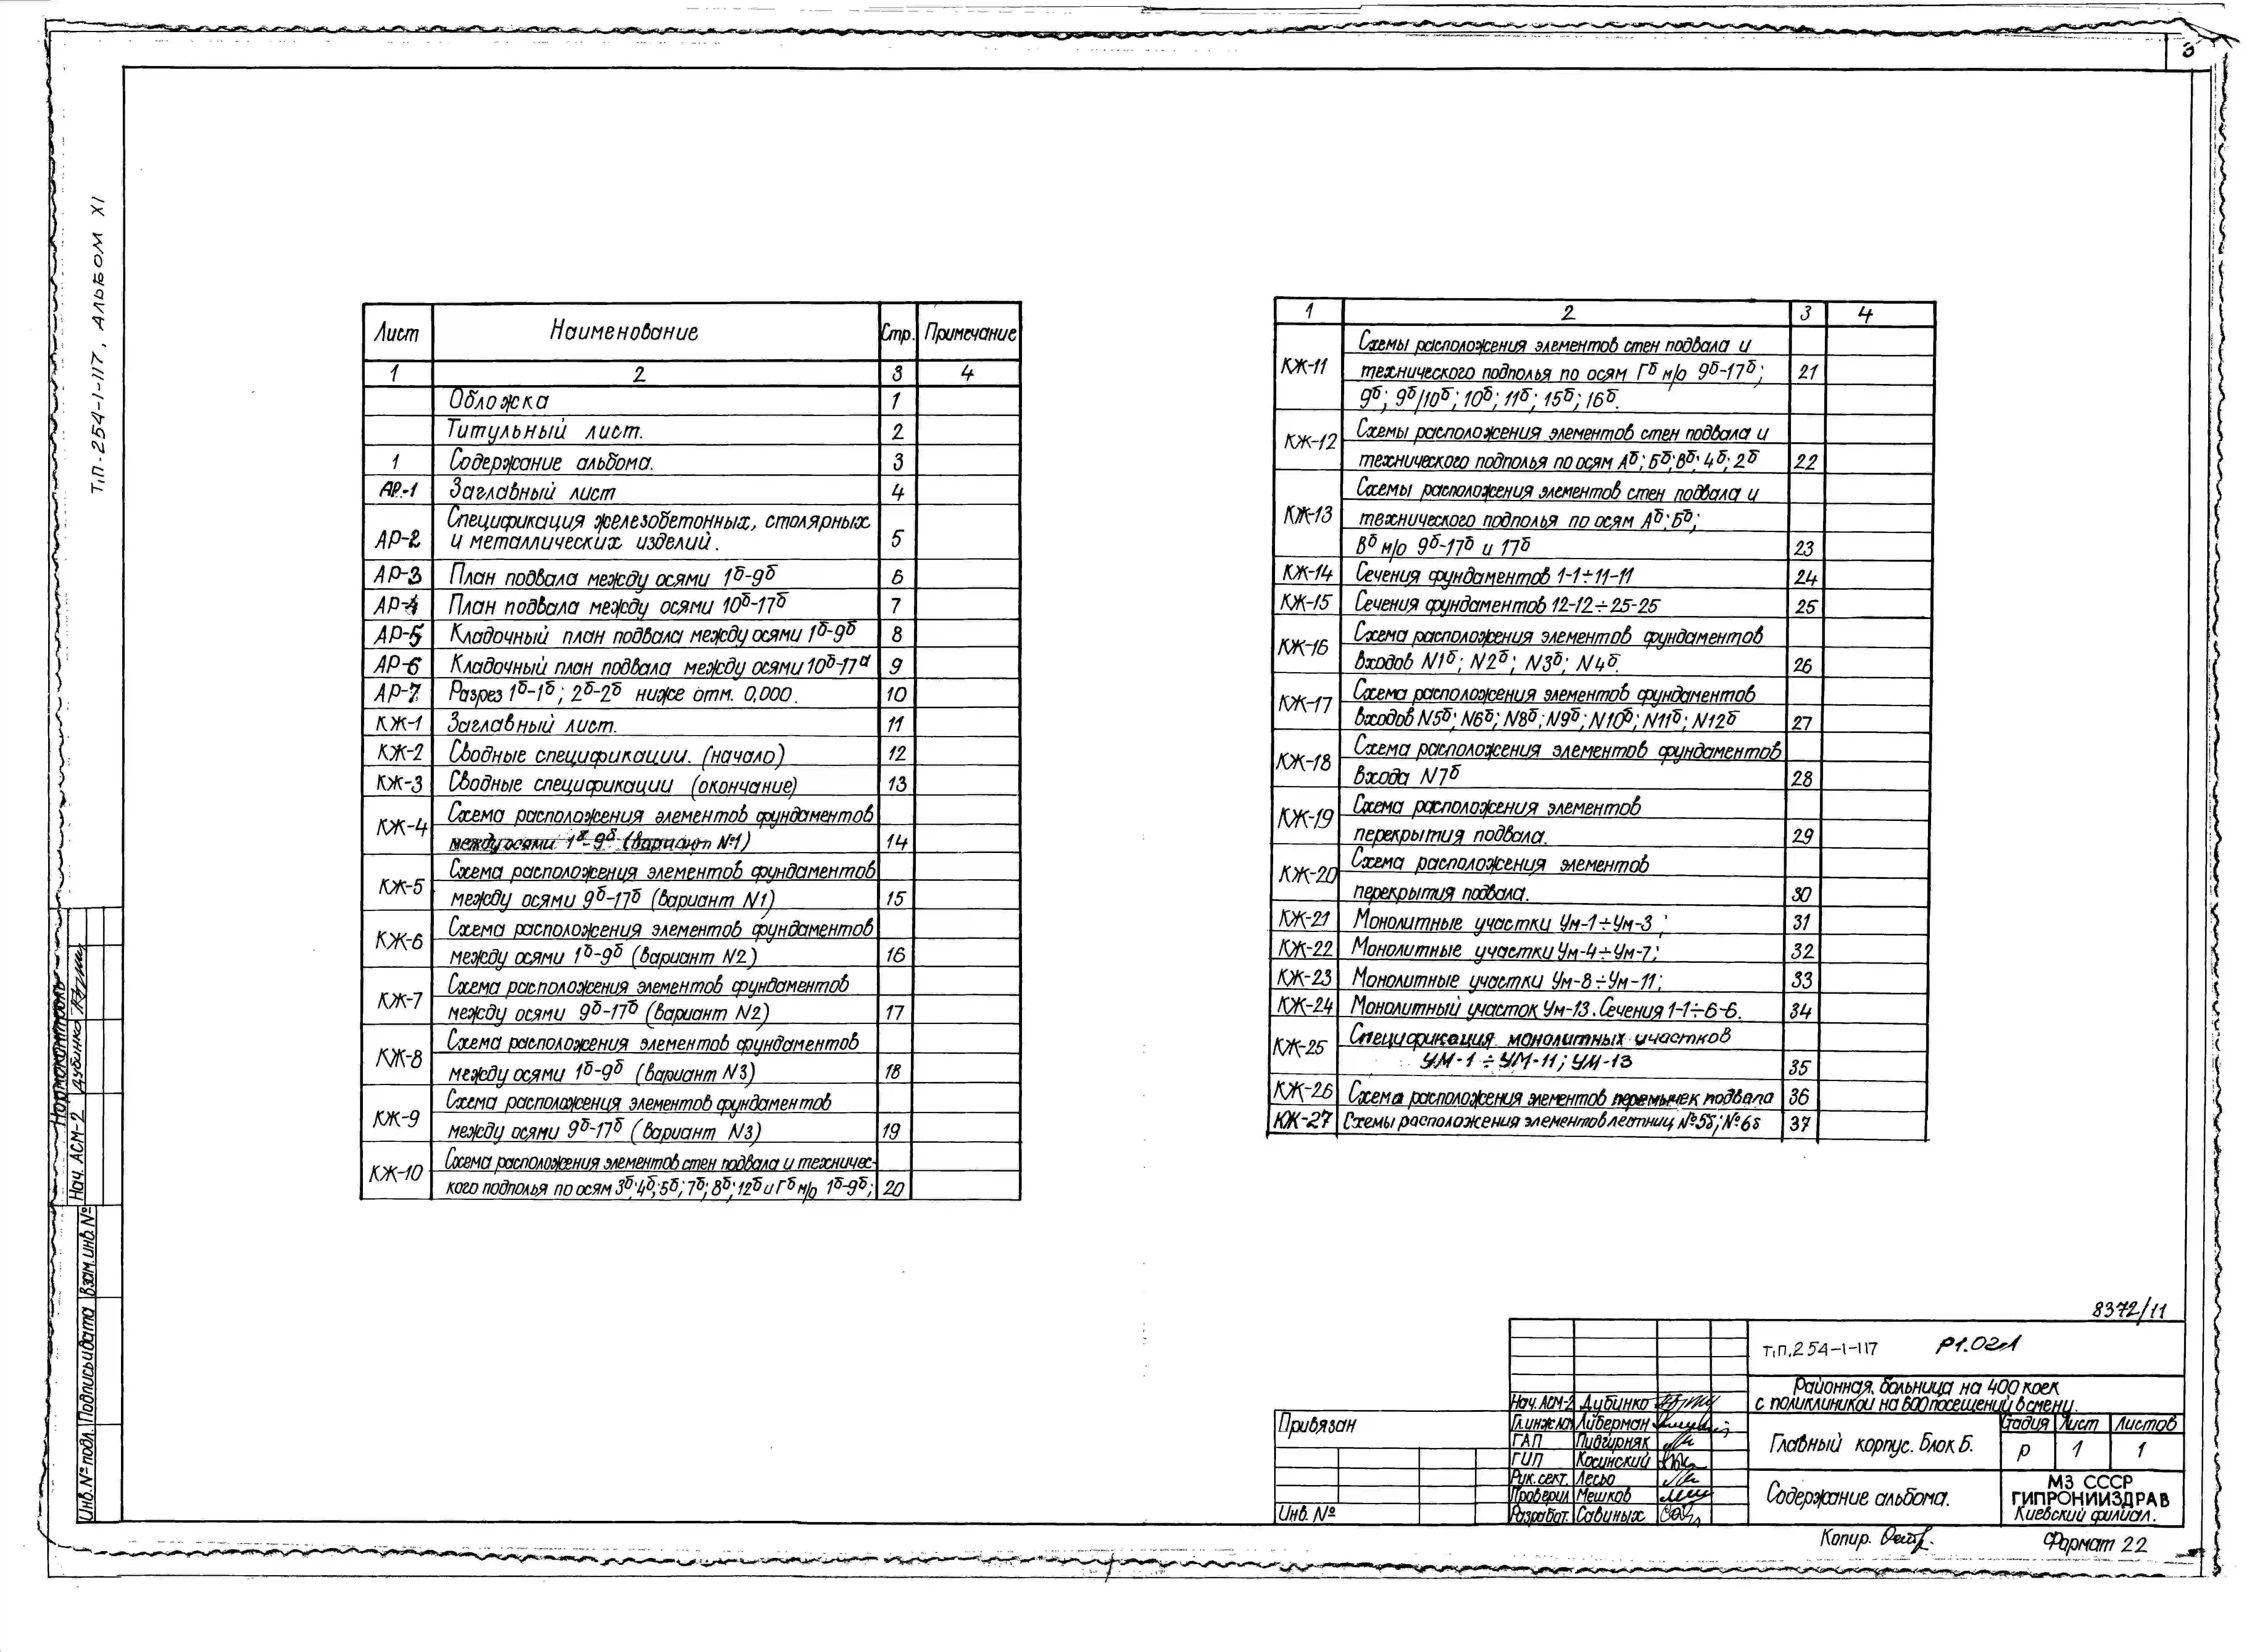 3
Т.П. 254-1-117, АЛЬБОМ XI
Лист Наименование Стр. Примечание
1 2 3 4
Обложка 1
Титульный лист. 2
1 Содержание альбома. 3
АР-1 Заглавный лист 4
Спецификация железобетонных, столярных
АР-2 и металлических изделий. 5
АР-3 План подвала между осями 1б-9б 6
АР-4 План подвала между осями 10б-17б 7
АР-5 Кладочный план подвала между осями 1б-9б 8
АР-6 Кладочный план подвала между осями 10б-17а 9
АР-7 Разрез 1б-1б; 2б-2б ниже отм. 0,000. 10
КЖ-1 Заглавный лист. 11
КЖ-2 Сводные спецификации. (начало) 12
КЖ-3 Сводные спецификации (окончание) 13
КЖ-4 Схема расположения элементов фундаментов
между осями 1б-9б (вариант №1) 14
КЖ-5 Схема расположения элементов фундаментов
между осями 9б-17б (вариант N1) 15
КЖ-6 Схема расположения элементов фундаментов
между осями 1б-9б (вариант N2) 16
КЖ-7 Схема расположения элементов фундаментов
между осями 9б-17б (вариант N2) 17
КЖ-8 Схема расположения элементов фундаментов
между осями 1б-9б (вариант N3) 18
КЖ-9 Схема расположения элементов фундаментов
между осями 9б-17б (вариант N3) 19
КЖ-10 Схема расположения элементов стен подвала и техничес-
кого подполья по осям 3б; 4б; 5б; 7б; 8б; 12б и Гб м/о 1б-9б; 20
1 2 3 4
КЖ-11 Схемы расположения элементов стен подвала и
технического подполья по осям Гб м/о 9б-17б; 21
9б; 9б/10б; 10б; 11б; 15б; 16б.
КЖ-12 Схемы расположения элементов стен подвала и
технического подполья по осям Аб; Бб; Вб; 4б; 2б 22
КЖ-13 Схемы расположения элементов стен подвала и
технического подполья по осям Аб; Бб;
Вб м/о 9б-17б и 17б 23
КЖ-14 Сечения фундаментов 1-1÷11-11 24
КЖ-15 Сечения фундаментов 12-12÷25-25 25
КЖ-16 Схема расположения элементов фундаментов
входов N1б; N2б; N3б; N4б. 26
КЖ-17 Схема расположения элементов фундаментов
входов N5б; N6б; N8б; N9б; N10б; N11б; N12б 27
КЖ-18 Схема расположения элементов фундаментов
входа N7б 28
КЖ-19 Схема расположения элементов
перекрытия подвала. 29
КЖ-20 Схема расположения элементов
перекрытия подвала. 30
КЖ-21 Монолитные участки Ум-1÷Ум-3; 31
КЖ-22 Монолитные участки Ум-4÷Ум-7; 32
КЖ-23 Монолитные участки Ум-8÷Ум-11; 33
КЖ-24 Монолитный участок Ум-13. Сечения 1-1÷6-6. 34
КЖ-25 Спецификация монолитных участков
УМ-1÷УМ-11; УМ-13 35
КЖ-26 Схема расположения элементов перемычек подвала 36
КЖ-27 Схемы расположения элементов лестниц №5б; №6б 37
Нормоконтроль
Нач. АСМ-2 Дубинко
Инв. № подл. Подпись и дата Взам. инв. №
8372/11
Т.П. 254-1-117
Районная больница на 400 коек
с поликлиникой на 600 посещений в смену.
Нач. АСМ-2 Дубинко
Либерман
ГАП Пидгирняк
ГИП Косинский
Рук. сект. Лесьо
Проверил Мешков
Разработ. Савиных
Привязан
Инв. №
Главный корпус. Блок Б.
Стадия Лист Листов
Р 1 1
Содержание альбома.
МЗ СССР
ГИПРОНИИЗДРАВ
Киевский филиал.
Копир.
Формат 22